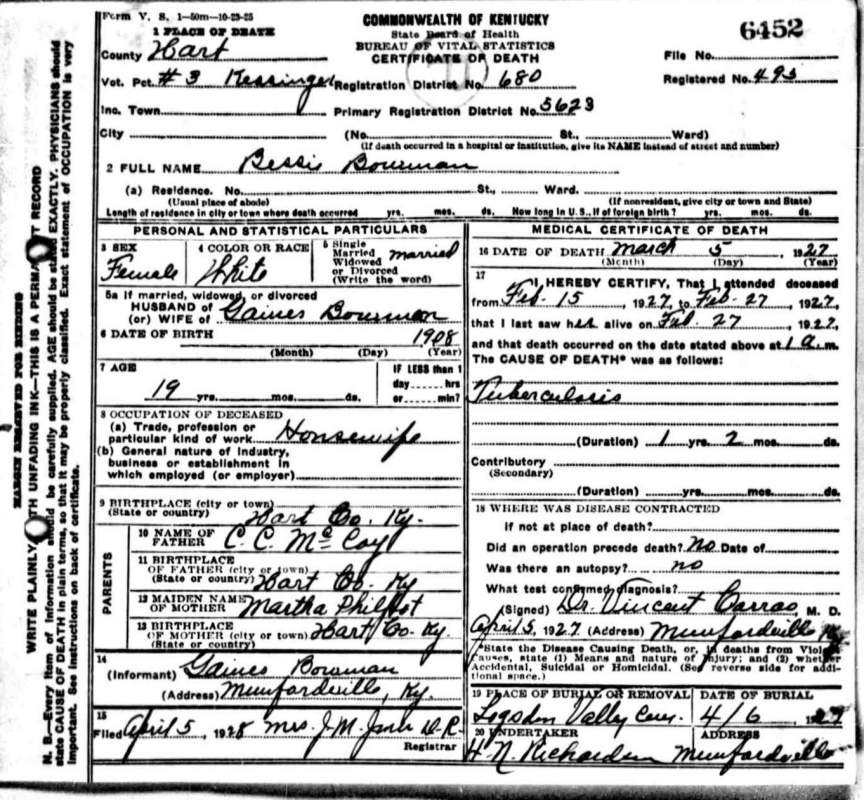 Form V. S. 1-50m-10-23-25
COMMONWEALTH OF KENTUCKY
State Board of Health
BUREAU OF VITAL STATISTICS
CERTIFICATE OF DEATH
6452
1 PLACE OF DEATH
County Hart
File No.
Vot. Pct. #3 Kessinger Registration District No. 680
Registered No. 493
Inc. Town Primary Registration District No. 5623
City (No. St., Ward)
(If death occurred in a hospital or institution, give its NAME instead of street and number)
2 FULL NAME Bessie Bowman
(a) Residence. No. St., Ward.
(Usual place of abode) (If nonresident, give city or town and State)
Length of residence in city or town where death occurred yrs. mos. ds. How long in U. S., if of foreign birth? yrs. mos. ds.
PERSONAL AND STATISTICAL PARTICULARS
3 SEX
Female
4 COLOR OR RACE
White
5 Single
Married
Widowed
or Divorced
(Write the word)
married
5a If married, widowed, or divorced
HUSBAND of
(or) WIFE of Gaines Bowman
6 DATE OF BIRTH 1908
(Month) (Day) (Year)
7 AGE
19 yrs. mos. ds.
IF LESS than 1
day hrs
or min?
8 OCCUPATION OF DECEASED
(a) Trade, profession or
particular kind of work Housewife
(b) General nature of industry,
business or establishment in
which employed (or employer)
9 BIRTHPLACE (city or town)
(State or country) Hart Co. Ky.
PARENTS
10 NAME OF
FATHER C. C. McCoy
11 BIRTHPLACE
OF FATHER (city or town)
(State or country) Hart Co. Ky
12 MAIDEN NAME
OF MOTHER Martha Philpot
13 BIRTHPLACE
OF MOTHER (city or town) Hart Co. Ky.
(State or country)
14
(Informant) Gaines Bowman
(Address) Munfordville, Ky.
15
Filed April 5, 1928 Mrs. J. M. D. R.
Registrar
MEDICAL CERTIFICATE OF DEATH
16 DATE OF DEATH March 5, 1927
(Month) (Day) (Year)
17
I HEREBY CERTIFY, That I attended deceased
from Feb. 15, 1927, to Feb. 27, 1927,
that I last saw her alive on Feb. 27, 1927,
and that death occurred on the date stated above at 1 a.m.
The CAUSE OF DEATH* was as follows:
Tuberculosis
(Duration) 1 yrs. 2 mos. ds.
Contributory
(Secondary)
(Duration) yrs. mos. ds.
18 WHERE WAS DISEASE CONTRACTED
If not at place of death?
Did an operation precede death? No Date of
Was there an autopsy? no
What test confirmed diagnosis?
(Signed) Dr. Vincent Carrao, M. D.
April 5, 1927 (Address) Munfordville Ky.
*State the Disease Causing Death, or, in deaths from Violent
Causes, state (1) Means and nature of Injury; and (2) whether
Accidental, Suicidal or Homicidal. (See reverse side for addi-
tional space.)
19 PLACE OF BURIAL OR REMOVAL
Logsdon Valley Cem.
DATE OF BURIAL
4/6 1927
20 UNDERTAKER
H. N. Richardson
ADDRESS
Munfordville
MARGIN RESERVED FOR BINDING
WRITE PLAINLY WITH UNFADING INK—THIS IS A PERMANENT RECORD
N. B.—Every item of information should be carefully supplied. AGE should be stated EXACTLY. PHYSICIANS should
state CAUSE OF DEATH in plain terms, so that it may be properly classified. Exact statement of OCCUPATION is very
important. See instructions on back of certificate.